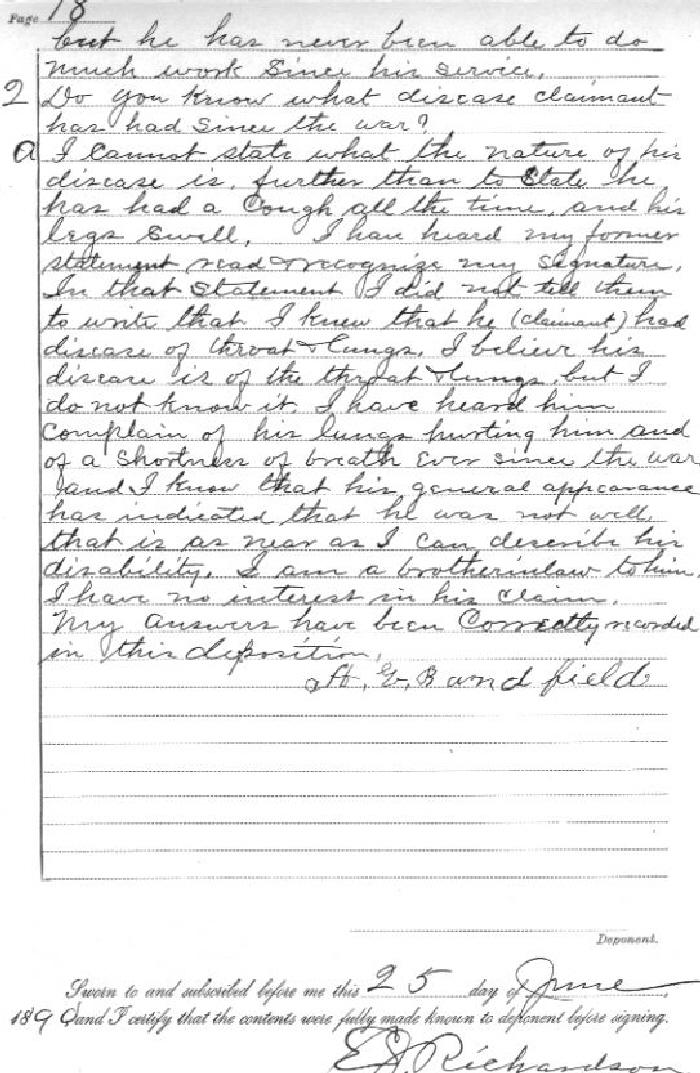 Page 18
but he has never been able to do
much work since his service.
2 Do you know what disease claimant
has had since the war?
a I cannot state what the nature of his
disease is, further than to state he
has had a cough all the time, and his
legs swell. I have heard my former
statement read & recognize my signature.
In that statement I did not tell them
to write that I knew that he (claimant) had
disease of throat & lungs. I believe his
disease is of the throat & lungs, but I
do not know it. I have heard him
complain of his lungs hurting him and
of a shortness of breath ever since the war
and I know that his general appearance
has indicated that he was not well
that is as near as I can describe his
disability. I am a brotherinlaw to him.
I have no interest in his claim.
My answers have been correctly recorded
in this deposition.
Bandfield
Deponent.
Sworn to and subscribed before me this 25 day of June,
189 and I certify that the contents were fully made known to deponent before signing.
Richardson